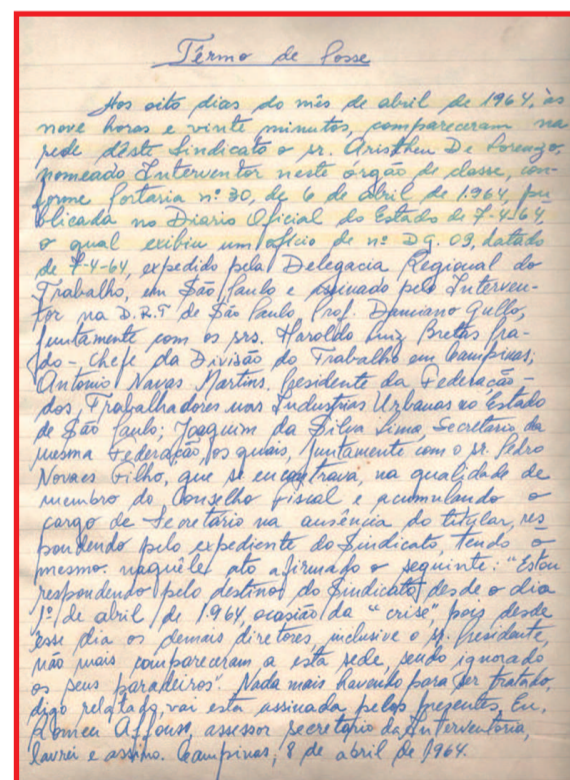 Têrmo de Posse
Aos oito dias do mês de abril de 1964, às
nove horas e vinte minutos, compareceram na
sede dêste Sindicato o sr. Aristheu De Lorenzo,
nomeado Interventor neste órgão de classe, con-
forme Portaria nº 30, de 6 de abril de 1.964, pu-
blicada no Diario Oficial do Estado de 7-4-64,
o qual exibiu um ofício de nº DG. 09, datado
de 7-4-64, expedido pela Delegacia Regional do
Trabalho, em São Paulo e assinado pelo Interven-
tor na D.R.T de São Paulo Prof. Damiano Gullo,
juntamente com os srs. Haroldo Luiz Brettas Pra-
do - Chefe da Divisão do Trabalho em Campinas;
Antonio Navas Martins. Presidente da Federação -
dos, Trabalhadores nas Industrias Urbanas no Estado
de São Paulo; Joaquim da Silva Lima, Secretario da
mesma Federação, os quais, juntamente com o sr. Pedro
Novaes Filho, que se encontrava, na qualidade de
membro do Conselho Fiscal e acumulando o
cargo de Secretario na ausência do titular, res
pondendo pelo expediente do Sindicato, tendo o
mesmo. naquêle ato afirmado o seguinte: "Estou
respondendo pelo destino do Sindicato, desde o dia
1º de abril de 1.964, ocasião da "crise", pois desde
êsse dia os demais diretores, inclusive o sr. Presidente,
não mais compareceram a esta sede, sendo ignorado
os seus paradeiros". Nada mais havendo para ser tratado,
digo relatado, vai esta assinada pelos presentes, Eu,
Romeu Affonso, assessor secretario da Interventoria,
lavrei e assino. Campinas, 8 de abril de 1964.